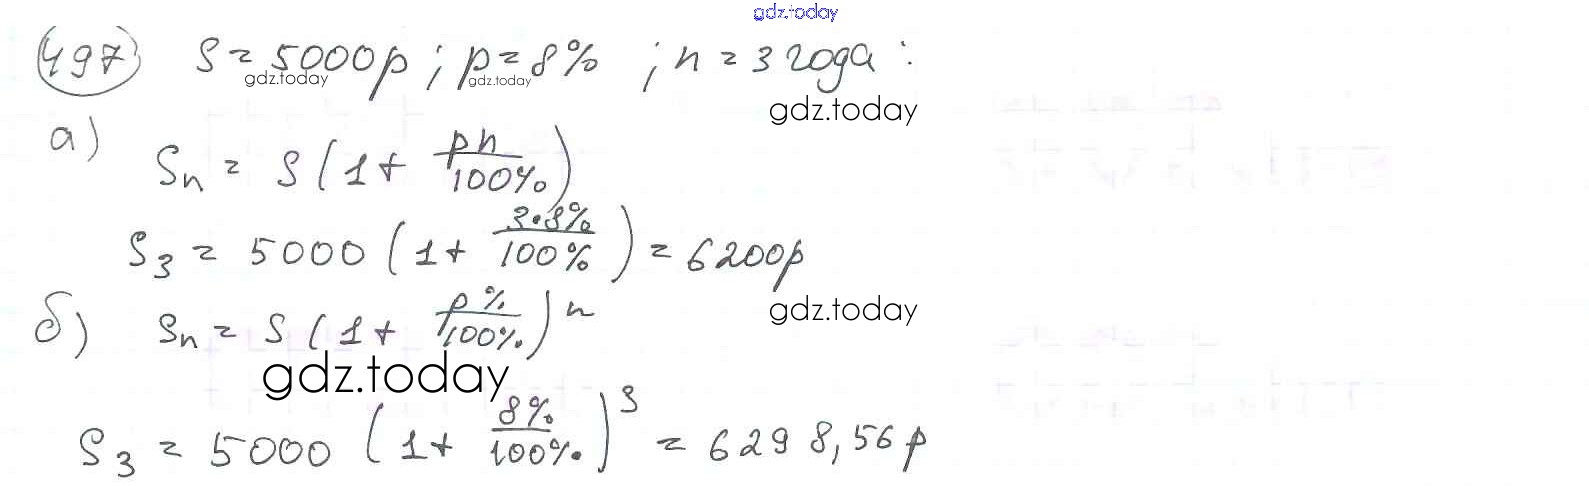 gdz.today
497) S = 5000р ; p = 8% ; n = 3 года :
gdz.today gdz.today
gdz.today
а)
Sn = S (1 + pn/100%)
S3 = 5000 (1 + 3·8%/100%) = 6200р
б) Sn = S (1 + p%/100%)^n
gdz.today
gdz.today
S3 = 5000 (1 + 8%/100%)^3 = 6298,56 р